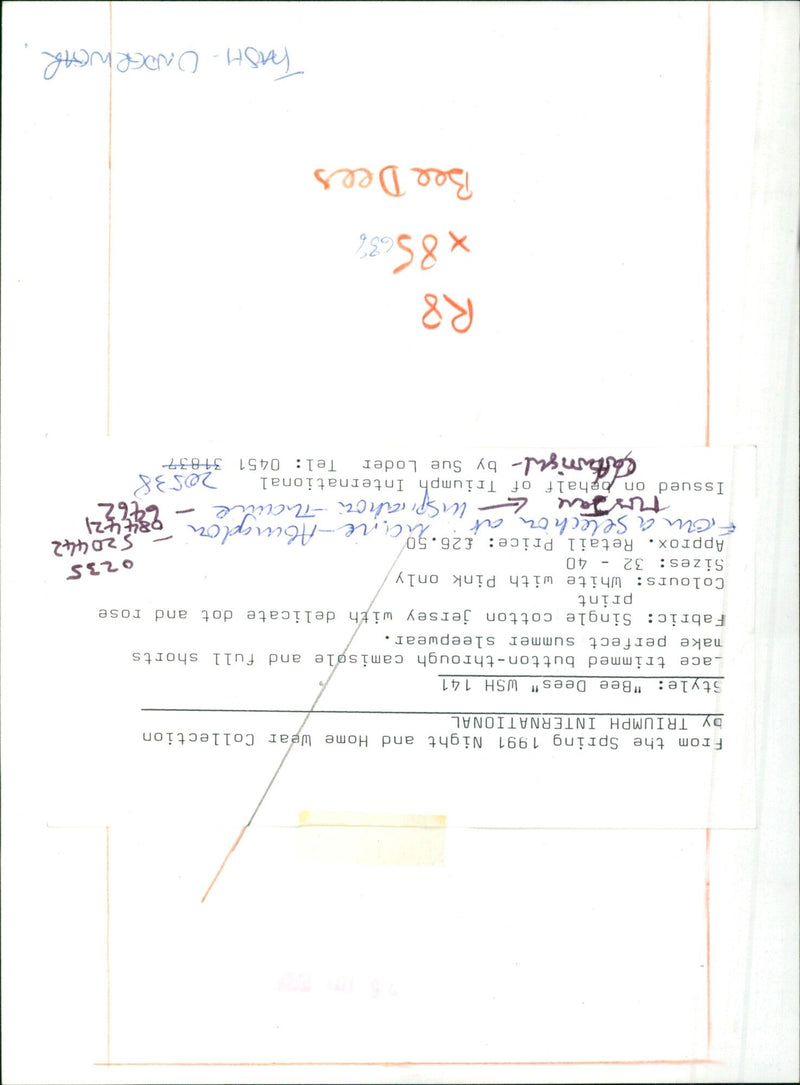 From the Spring 1991 Night and Home Wear Collection
by TRIUMPH INTERNATIONAL
Style: "Bee Dees" WSH 141
ace trimmed button-through camisole and full shorts
make perfect summer sleepwear.
Fabric: Single cotton jersey with delicate dot and rose
print
Colours: White with Pink only
Sizes: 32 - 40
Approx. Retail Price: £26.50
0235
520442
From a selection at Abingdon -
084421
6462
Mrs Jau ← Inspiration -
Issued on behalf of Triumph International 20538
by Sue Loder Tel: 0451 31837
R8
x 85 63%
Bee Dees
FASH - UNDERWEAR